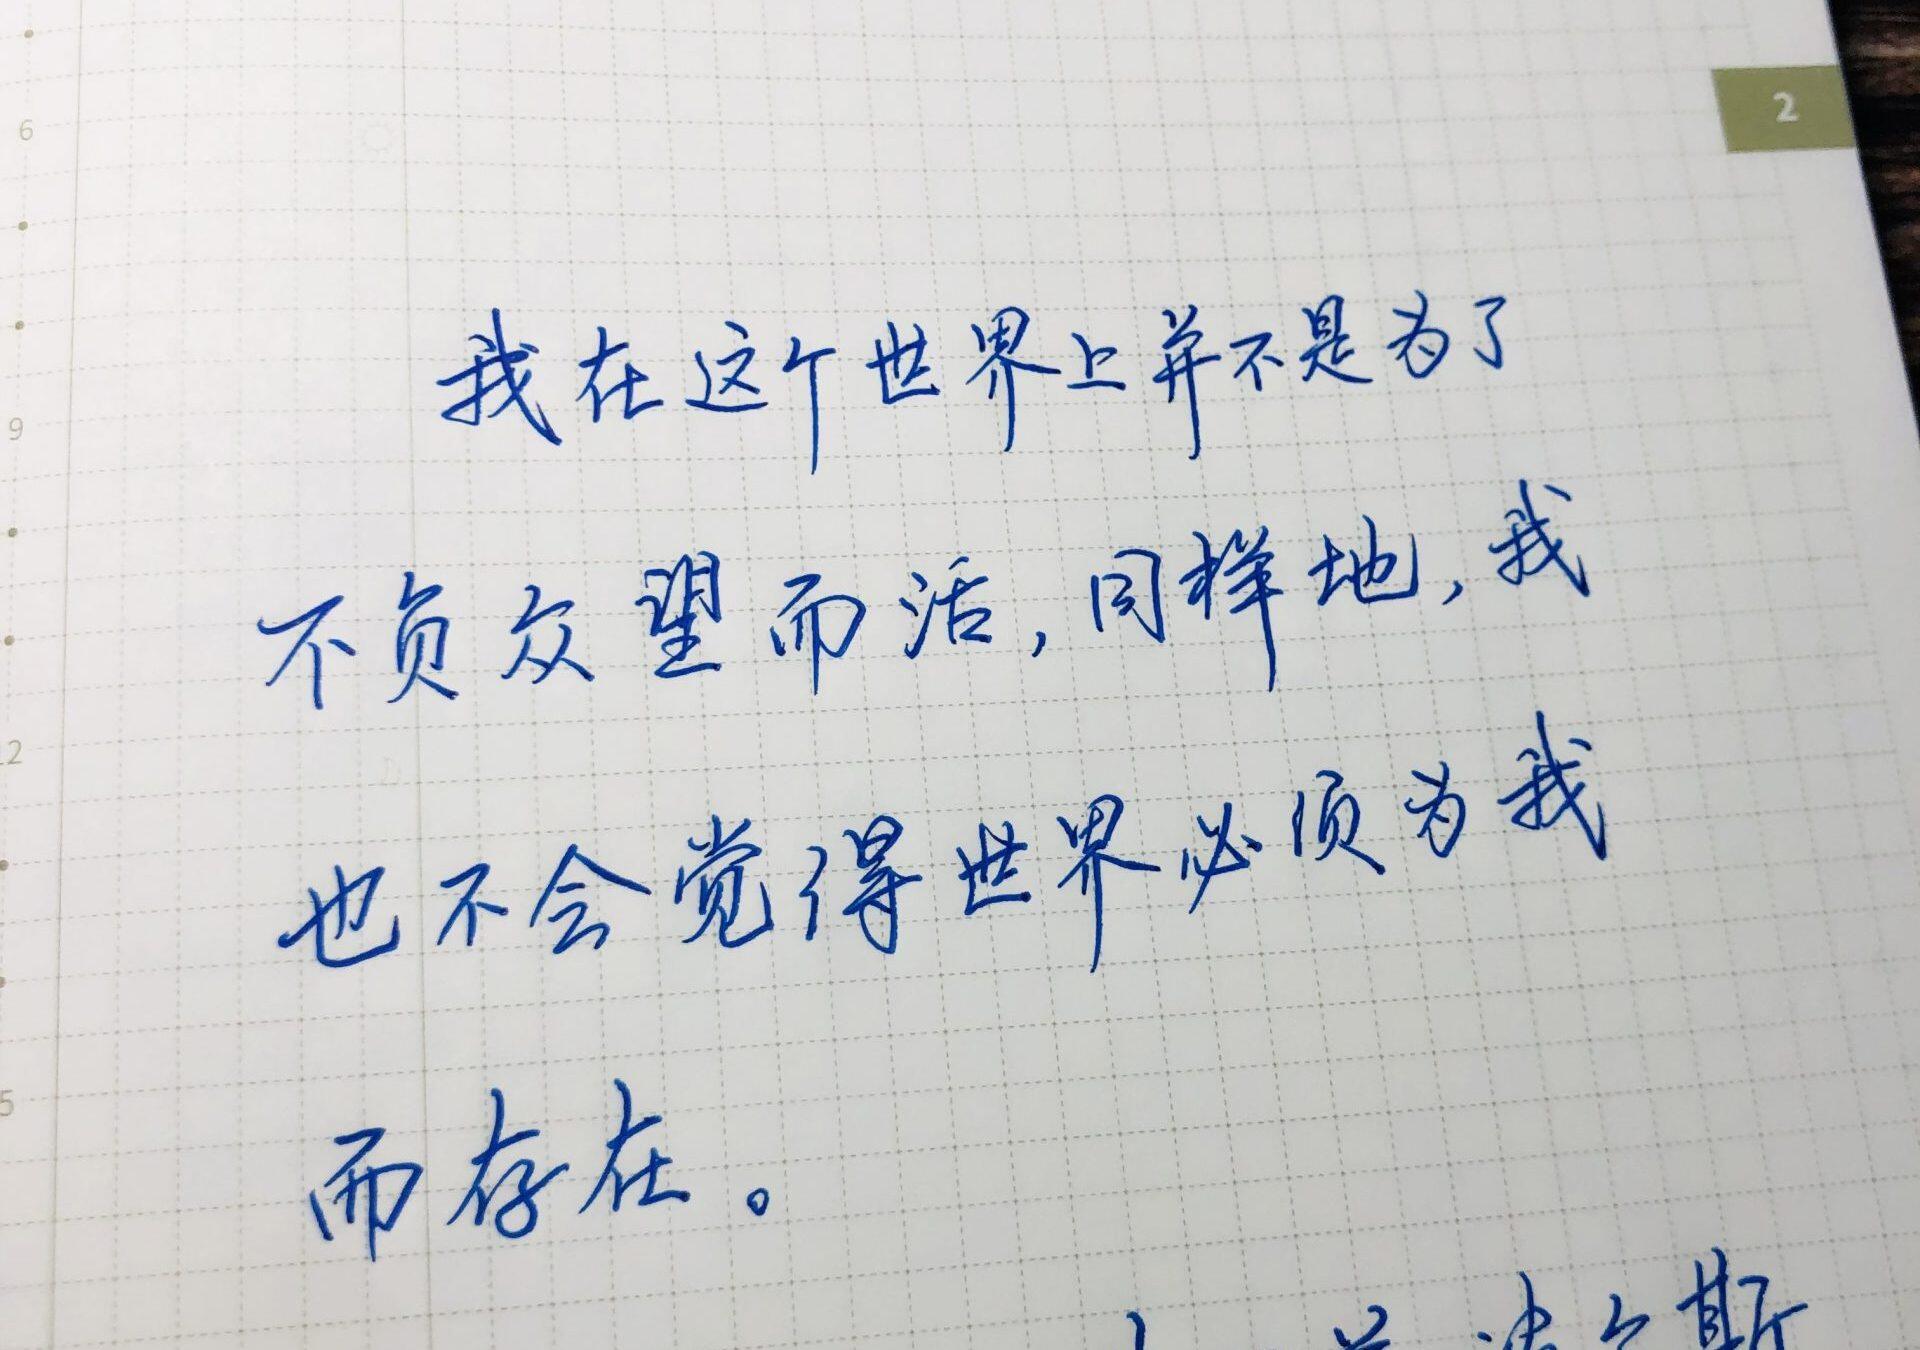 2
6
我在这个世界上并不是为了
9
不负众望而活，同样地，我
12
也不会觉得世界必须为我
5
而存在。
斯